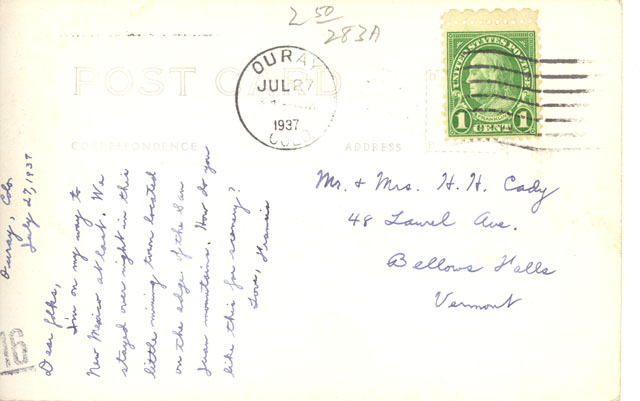 2 50
283A
POST CARD
OURAY
JUL 27
1937
COLO
UNITED STATES POSTAGE
FRANKLIN
1 CENT 1
CORRESPONDENCE
ADDRESS
Ouray, Colo
July 27, 1937
Dear folks,
I'm on my way to
New Mexico at last. We
stayed over night in this
little mining town located
on the edge of the San
Juan mountains. How do you
like this for scenery?
Love, Francis
Mr. & Mrs. H. H. Cady
48 Laurel Ave.
Bellows Falls
Vermont